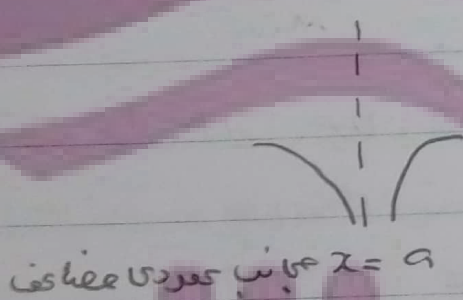 x = a مجانب عمودی مضاعف